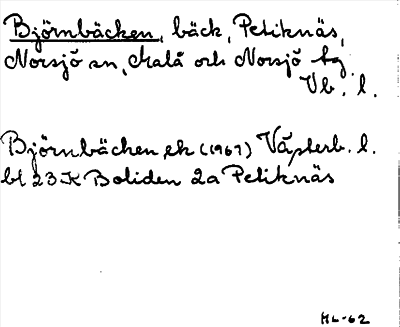 Björnbäcken, bäck, Petiknäs,
Norsjö sn, Malå och Norsjö tg
Vb. l.
Björnbäcken ek (1967) Västerb. l.
bl 23 K Boliden 2a Petiknäs
ML-62